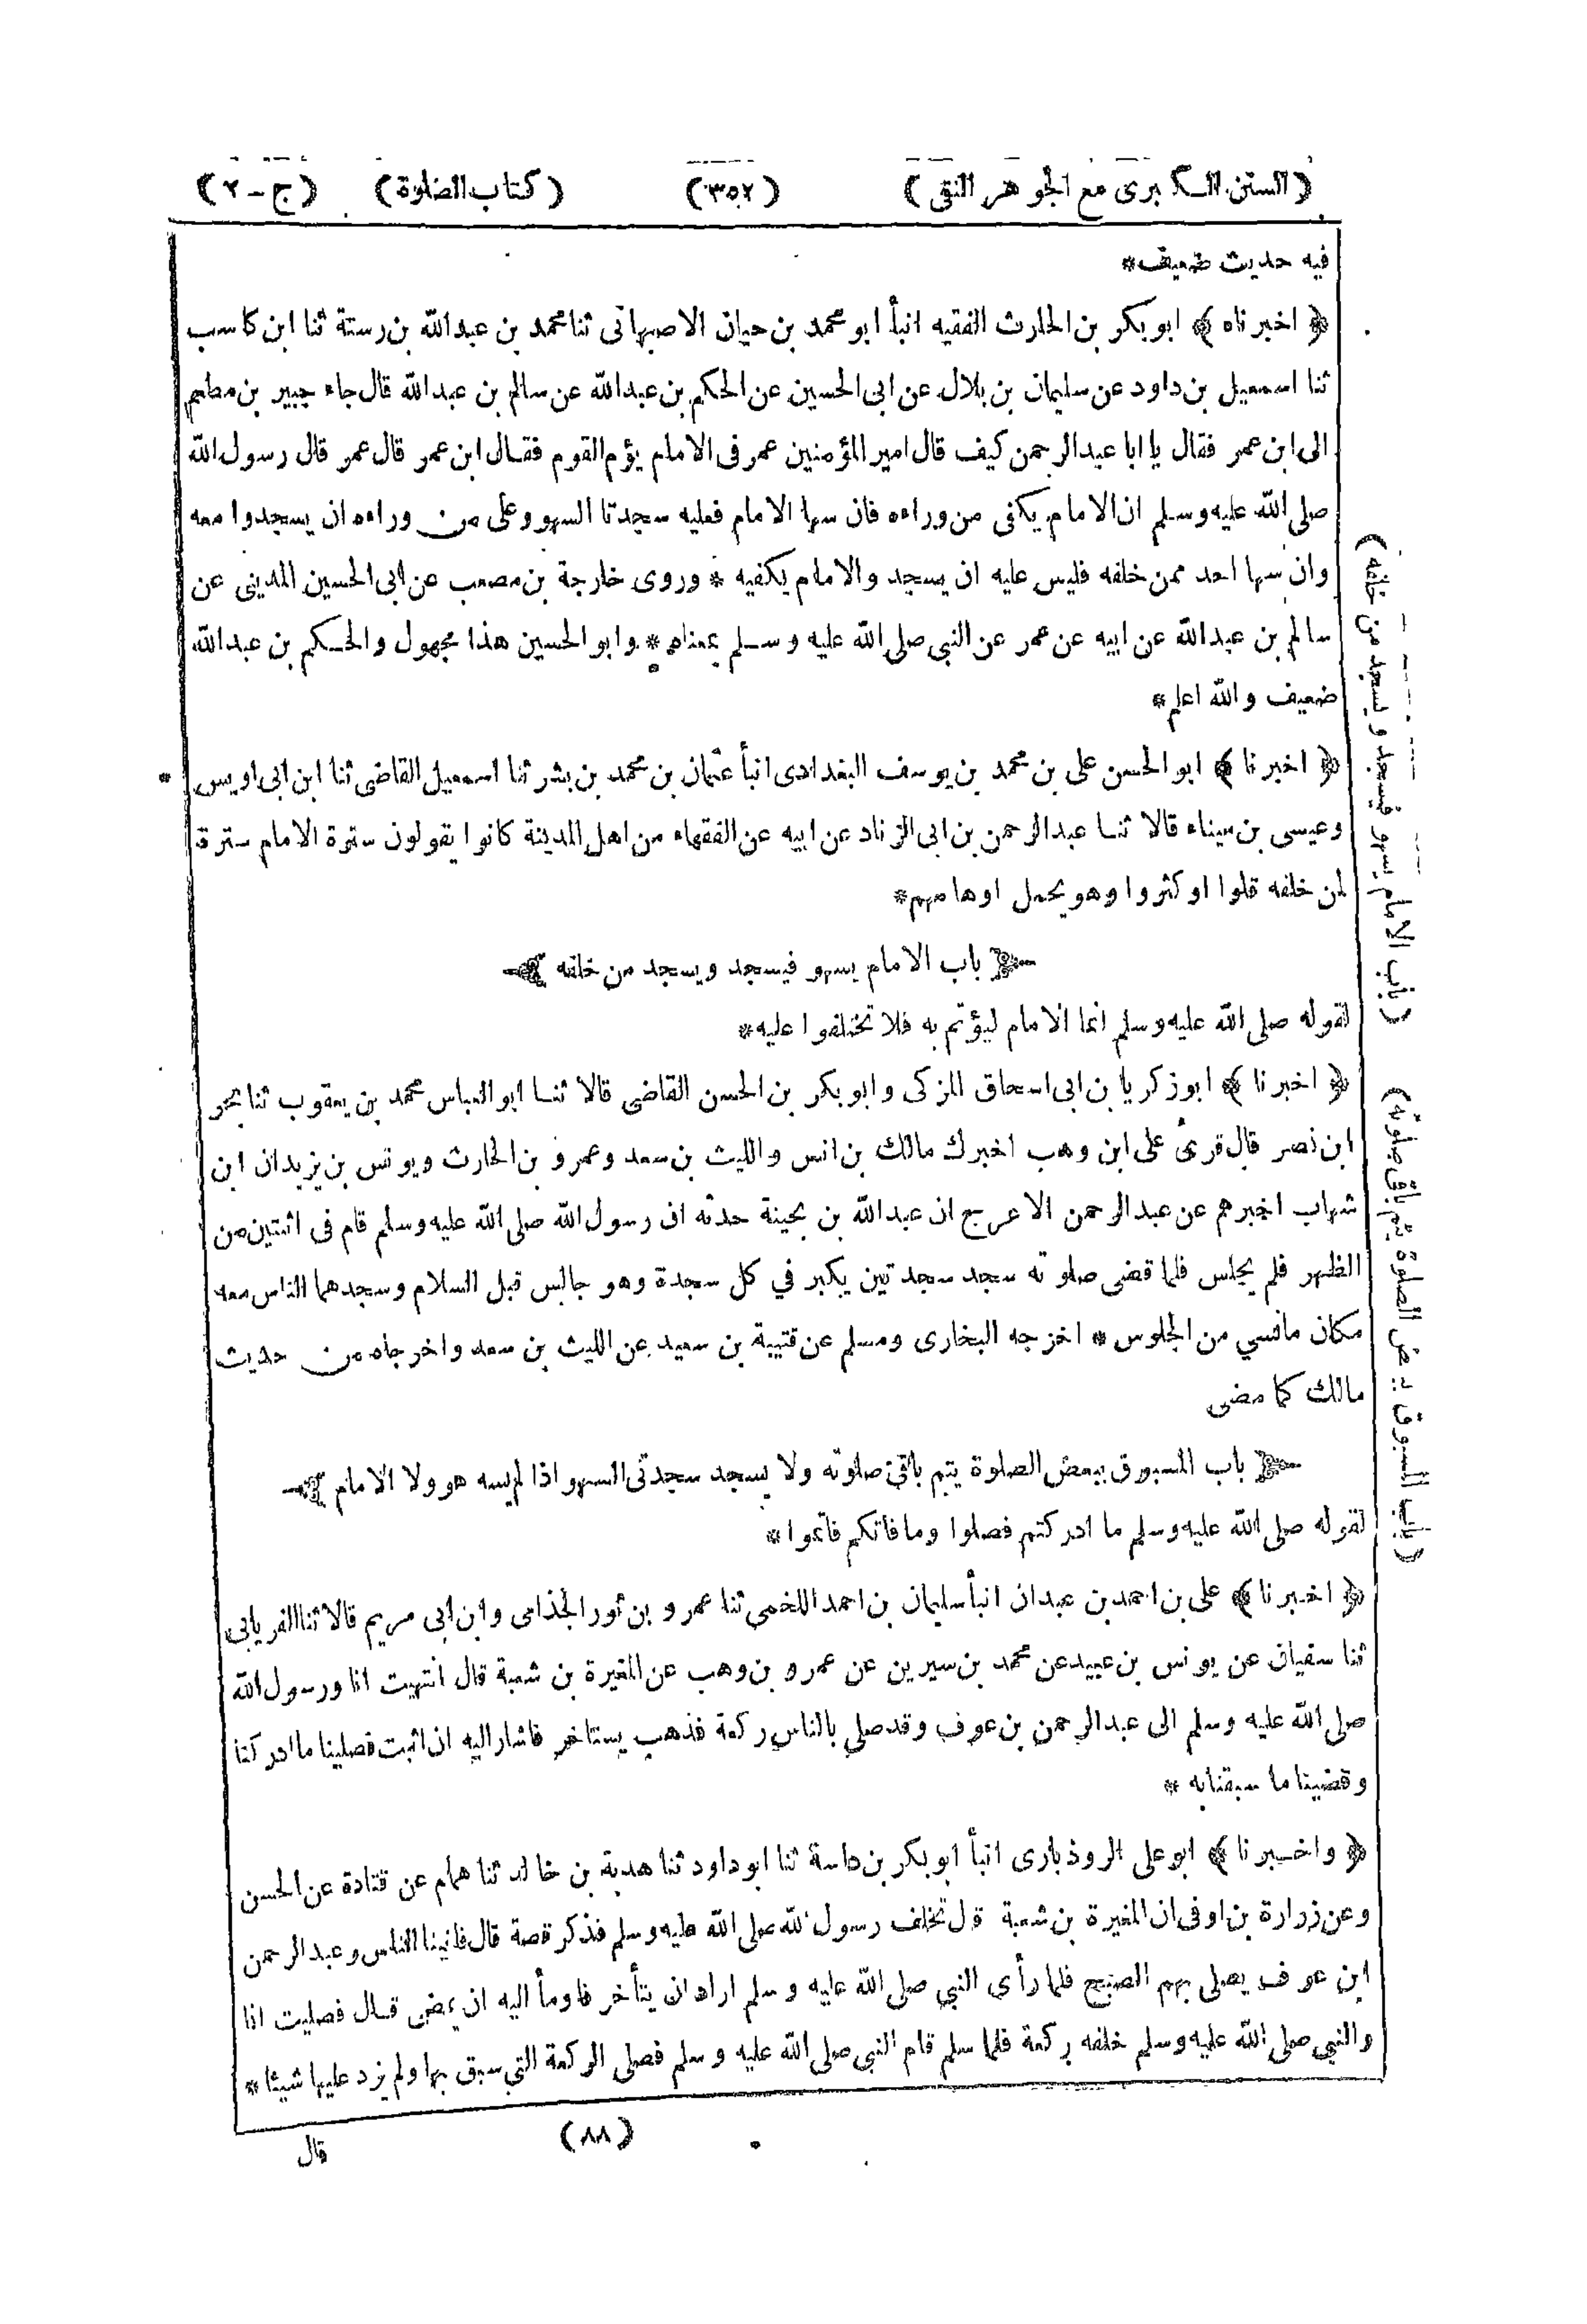 (السنن الكبرى مع الجوهر النقى) (٣٥٢) (كتاب الصلوة) (ج-٢)
فيه حديث ضعيف*
﴿ اخبرناه ﴾ ابو بكر بن الحارث الفقيه انبأ ابو محمد بن حيان الاصبهانى ثنا محمد بن عبدالله بن رستة ثنا ابن كاسب
ثنا اسمعيل بن داود عن سليمان بن بلال عن ابى الحسين عن الحكم بن عبدالله عن سالم بن عبدالله قال جاء جبير بن مطعم
الى ابن عمر فقال يا ابا عبدالرحمن كيف قال امير المؤمنين عمر فى الامام يؤم القوم فقال ابن عمر قال عمر قال رسول الله
صلى الله عليه وسلم ان الامام يكفى من وراءه فان سها الامام فعليه سجدتا السهو وعلى من وراءه ان يسجدوا معه
وان سها احد ممن خلفه فليس عليه ان يسجد والامام يكفيه * وروى خارجة بن مصعب عن ابى الحسين المدينى عن
سالم بن عبدالله عن ابيه عن عمر عن النبى صلى الله عليه وسلم بمعناه * وابو الحسين هذا مجهول والحكم بن عبدالله
ضعيف والله اعلم*
﴿ اخبرنا ﴾ ابو الحسن على بن محمد بن يوسف البغدادى انبأ عثمان بن محمد بن بشر ثنا اسمعيل القاضى ثنا ابن ابى اويس *
وعيسى بن ميناء قالا ثنا عبدالرحمن بن ابى الزناد عن ابيه عن الفقهاء من اهل المدينة كانوا يقولون سترة الامام سترة
لمن خلفه قلوا او كثروا وهو يحمل اوهامهم*
باب الامام يسهو فيسجد ويسجد من خلفه
لقوله صلى الله عليه وسلم انما الامام ليؤتم به فلا تختلفوا عليه*
﴿ اخبرنا ﴾ ابو زكريا بن ابى اسحاق المزكى وابو بكر بن الحسن القاضى قالا ثنا ابو العباس محمد بن يعقوب ثنا بحر
ابن نصر قال قرئ على ابن وهب اخبرك مالك بن انس والليث بن سعد وعمرو بن الحارث ويونس بن يزيد ان ابن
شهاب اخبرهم عن عبدالرحمن الاعرج ان عبدالله بن بحينة حدثه ان رسول الله صلى الله عليه وسلم قام فى اثنتين من
الظهر فلم يجلس فلما قضى صلوته سجد سجدتين يكبر في كل سجدة وهو جالس قبل السلام وسجدهما الناس معه
مكان مانسي من الجلوس * اخرجه البخارى ومسلم عن قتيبة بن سعيد عن الليث بن سعد واخرجاه من حديث
مالك كما مضى
باب المسبوق ببعض الصلوة يتم باقى صلوته ولا يسجد سجدتى السهو اذا لم يسه هو ولا الامام
لقوله صلى الله عليه وسلم ما ادركتم فصلوا وما فاتكم فأتموا*
﴿ اخبرنا ﴾ على بن احمد بن عبدان انبأ سليمان بن احمد اللخمى ثنا عمرو بن ثور الجذامى وابن ابى مريم قالا ثنا الفريابى
ثنا سفيان عن يونس بن عبيد عن محمد بن سيرين عن عمرو بن وهب عن المغيرة بن شعبة قال انتهيت انا ورسول الله
صلى الله عليه وسلم الى عبدالرحمن بن عوف وقد صلى بالناس ركعة فذهب يستاخر فاشار اليه ان اثبت فصلينا ما ادركنا
وقضينا ما سبقنا به *
﴿ واخبرنا ﴾ ابو على الروذبارى انبأ ابو بكر بن داسة ثنا ابو داود ثنا هدبة بن خالد ثنا همام عن قتادة عن الحسن
وعن زرارة بن اوفى ان المغيرة بن شعبة قال تخلف رسول الله صلى الله عليه وسلم فذكر قصة قال فاتينا الناس وعبدالرحمن
ابن عوف يصلى بهم الصبح فلما رأى النبي صلى الله عليه وسلم اراد ان يتأخر فاومأ اليه ان يمضى قال فصليت انا
والنبي صلى الله عليه وسلم خلفه ركعة فلما سلم قام النبى صلى الله عليه وسلم فصلى الركعة التى سبق بها ولم يزد عليها شيئا *
(باب الامام يسهو فيسجد ويسجد من خلفه)
(باب المسبوق ببعض الصلوة يتم باقى صلوته)
(٨٨)
قال